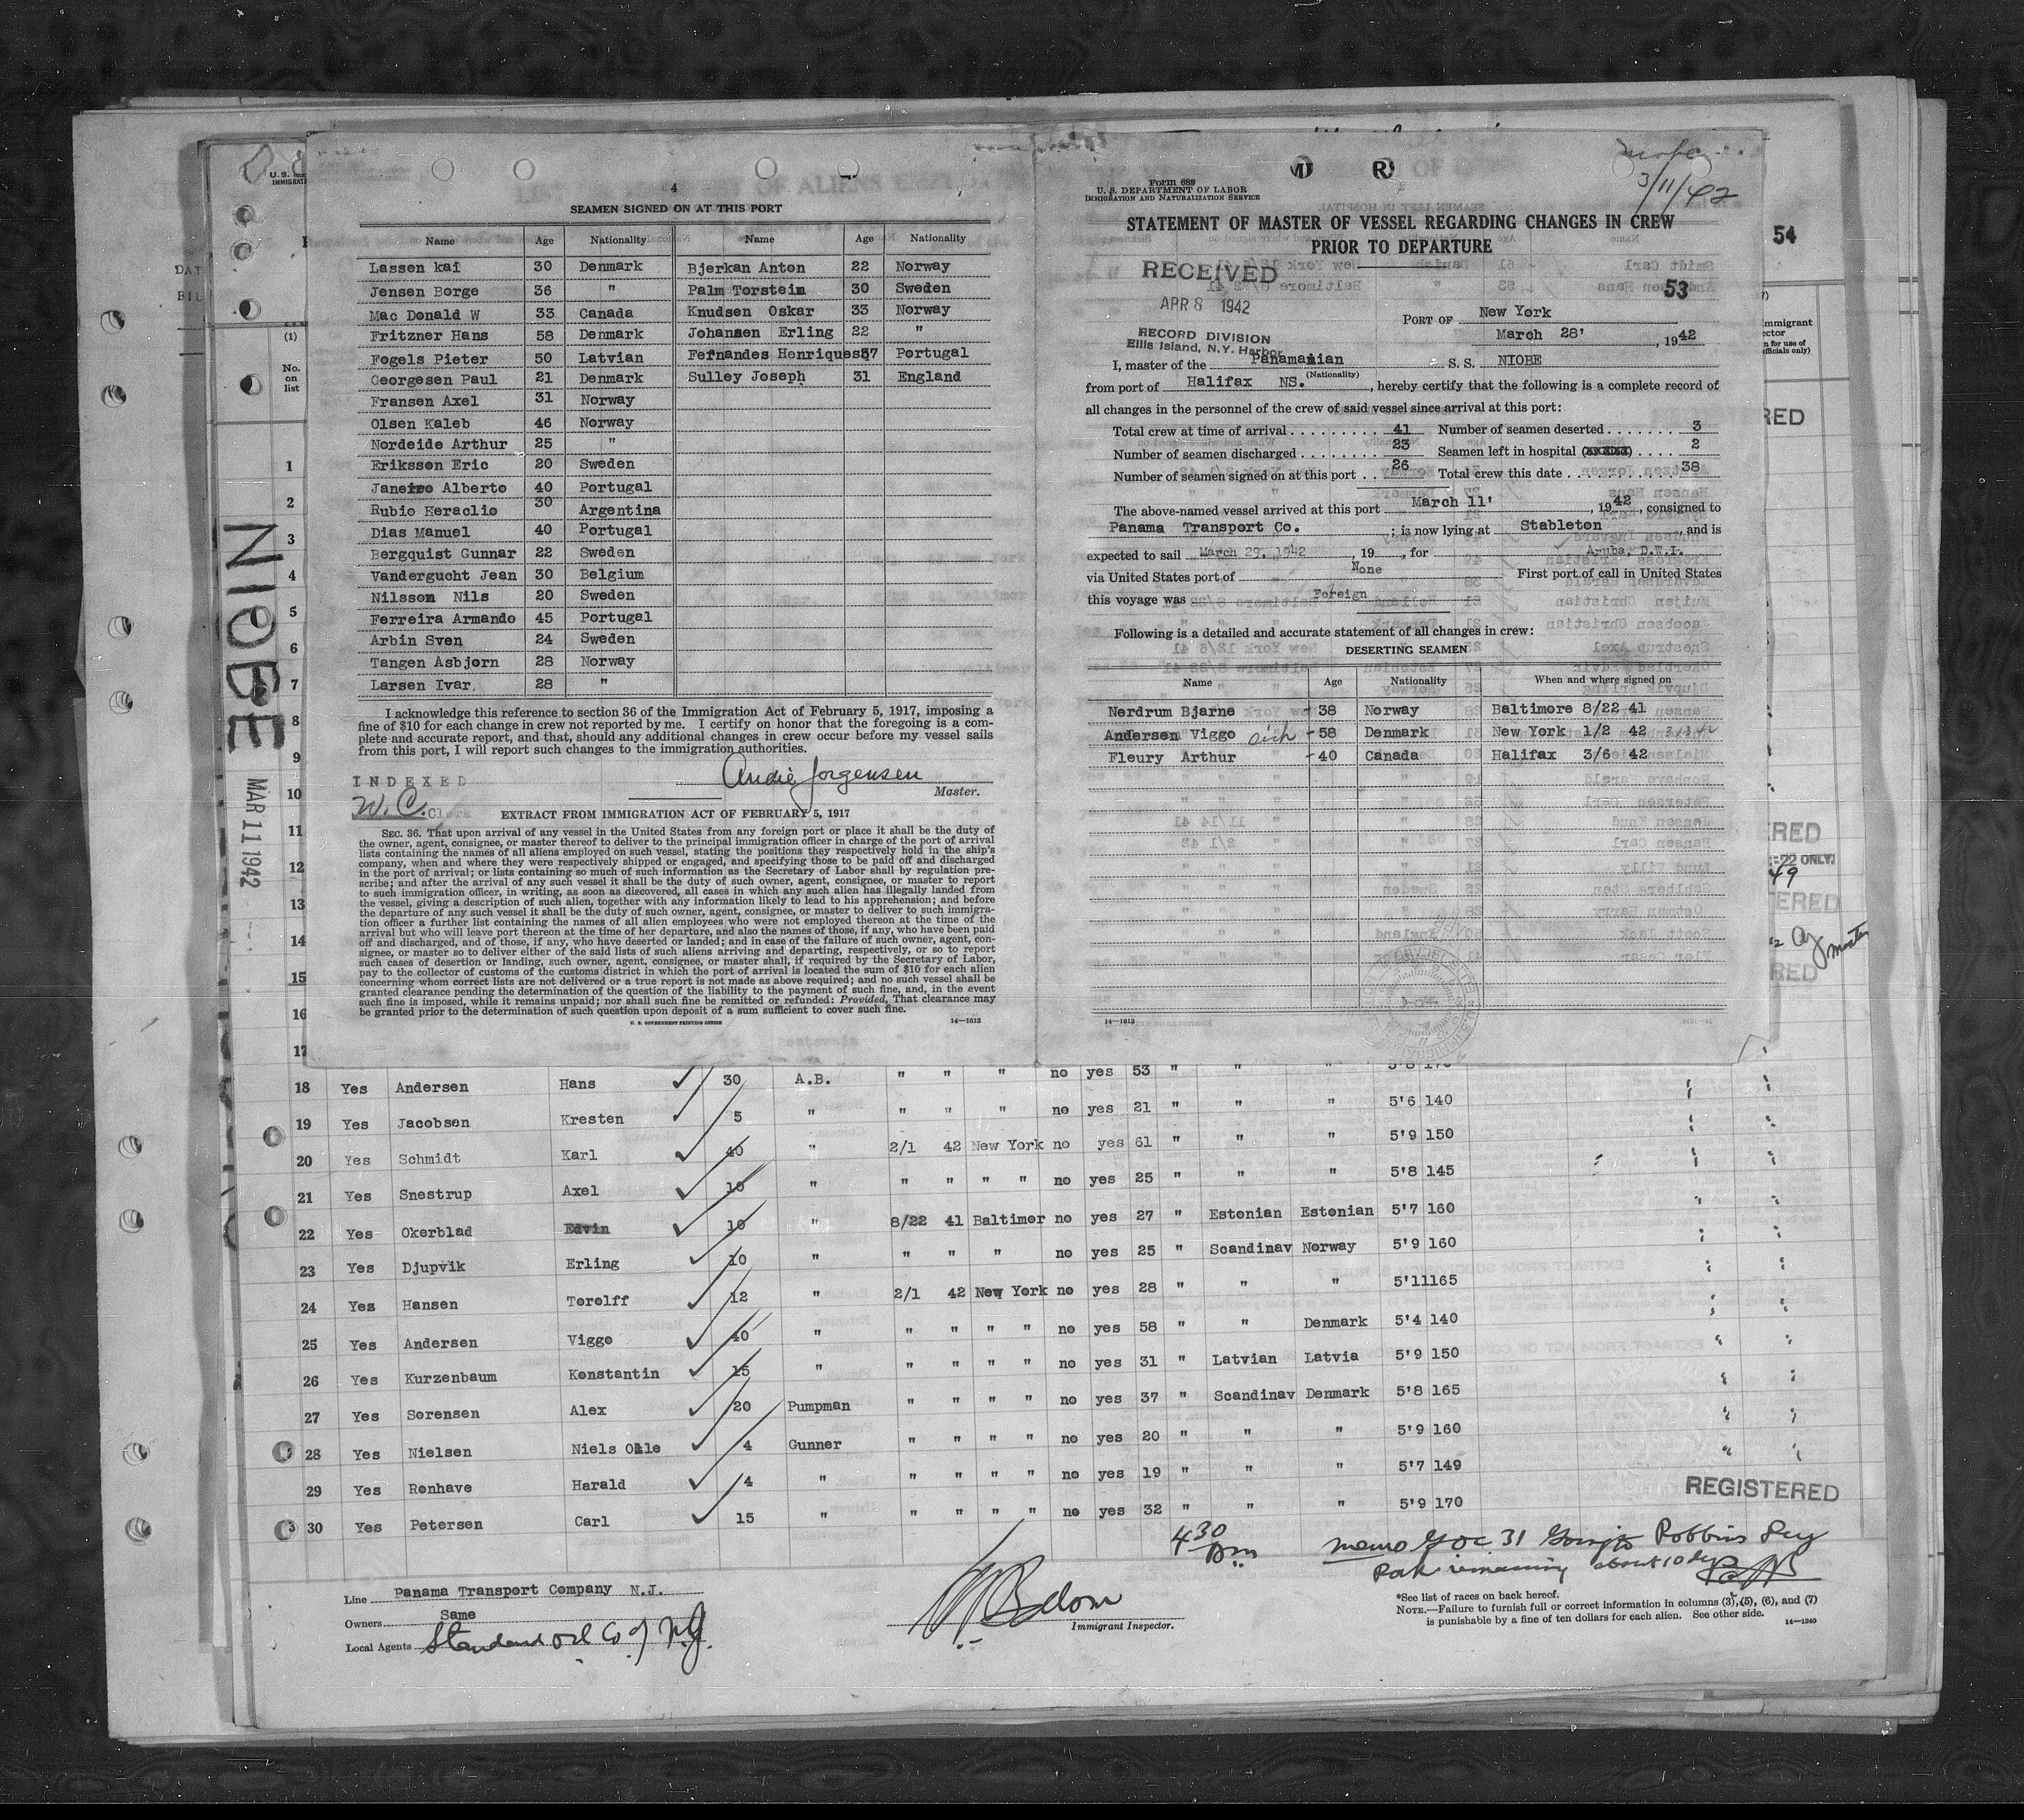 4
SEAMEN SIGNED ON AT THIS PORT
Name Age Nationality Name Age Nationality
Lassen kai 30 Denmark Bjerkan Anton 22 Norway
Jensen Borge 36 " Palm Torstein 30 Sweden
Mac Donald W 33 Canada Knudsen Oskar 33 Norway
Fritzner Hans 58 Denmark Johansen Erling 22 "
Fogels Pieter 50 Latvian Fernandes Henriques 37 Portugal
Georgesen Paul 21 Denmark Sulley Joseph 31 England
Fransen Axel 31 Norway
Olsen Kaleb 46 Norway
Nordeide Arthur 25 "
Eriksson Eric 20 Sweden
Janeiro Alberto 40 Portugal
Rubio Heraclio 30 Argentina
Dias Manuel 40 Portugal
Bergquist Gunnar 22 Sweden
Vandergucht Jean 30 Belgium
Nilsson Nils 20 Sweden
Ferreira Armando 45 Portugal
Arbin Sven 24 Sweden
Tangen Asbjorn 28 Norway
Larsen Ivar. 28 "
I acknowledge this reference to section 36 of the Immigration Act of February 5, 1917, imposing a
fine of $10 for each change in crew not reported by me. I certify on honor that the foregoing is a com-
plete and accurate report, and that, should any additional changes in crew occur before my vessel sails
from this port, I will report such changes to the immigration authorities.
INDEXED
W. C. Clerk
Jorgensen
Master.
EXTRACT FROM IMMIGRATION ACT OF FEBRUARY 5, 1917
SEC. 36. That upon arrival of any vessel in the United States from any foreign port or place it shall be the duty of
the owner, agent, consignee, or master thereof to deliver to the principal immigration officer in charge of the port of arrival
lists containing the names of all aliens employed on such vessel, stating the positions they respectively hold in the ship's
company, when and where they were respectively shipped or engaged, and specifying those to be paid off and discharged
in the port of arrival; or lists containing so much of such information as the Secretary of Labor shall by regulation pre-
scribe; and after the arrival of any such vessel it shall be the duty of such owner, agent, consignee, or master to report
to such immigration officer, in writing, as soon as discovered, all cases in which any such alien has illegally landed from
the vessel, giving a description of such alien, together with any information likely to lead to his apprehension; and before
the departure of any such vessel it shall be the duty of such owner, agent, consignee, or master to deliver to such immigra-
tion officer a further list containing the names of all alien employees who were not employed thereon at the time of the
arrival but who will leave port thereon at the time of her departure, and also the names of those, if any, who have been paid
off and discharged, and of those, if any, who have deserted or landed; and in case of the failure of such owner, agent, con-
signee, or master so to deliver either of the said lists of such aliens arriving and departing, respectively, or so to report
such cases of desertion or landing, such owner, agent, consignee, or master shall, if required by the Secretary of Labor,
pay to the collector of customs of the customs district in which the port of arrival is located the sum of $10 for each alien
concerning whom correct lists are not delivered or a true report is not made as above required; and no such vessel shall be
granted clearance pending the determination of the question of the liability to the payment of such fine, and, in the event
such fine is imposed, while it remains unpaid; nor shall such fine be remitted or refunded: Provided, That clearance may
be granted prior to the determination of such question upon deposit of a sum sufficient to cover such fine.
U. S. GOVERNMENT PRINTING OFFICE 14—1613
Form 689
U. S. DEPARTMENT OF LABOR
IMMIGRATION AND NATURALIZATION SERVICE
Niobe
3/11/42
STATEMENT OF MASTER OF VESSEL REGARDING CHANGES IN CREW
PRIOR TO DEPARTURE
RECEIVED
APR 8 1942
RECORD DIVISION
Ellis Island, N.Y. Harbor
53
54
PORT OF New York
March 28' , 1942
I, master of the Panamanian S. S. NIOBE
(Nationality)
from port of Halifax NS. , hereby certify that the following is a complete record of
all changes in the personnel of the crew of said vessel since arrival at this port:
Total crew at time of arrival 41 Number of seamen deserted 3
Number of seamen discharged 23 Seamen left in hospital 2
Number of seamen signed on at this port 26 Total crew this date 38
The above-named vessel arrived at this port March 11' , 1942, consigned to
Panama Transport Co. ; is now lying at Stableton , and is
expected to sail March 29, 1942 , 19 , for Aruba, D.W.I.
via United States port of None First port of call in United States
this voyage was Foreign
Following is a detailed and accurate statement of all changes in crew:
DESERTING SEAMEN
Name Age Nationality When and where signed on
Nerdrum Bjarne 38 Norway Baltimore 8/22 41
Andersen Viggo sick 58 Denmark New York 1/2 42
Fleury Arthur 40 Canada Halifax 3/6 42
14—1613
NIOBE
MAR 11 1942
U. S.
IMMIGRAT
(1)
No.
on
list
1
2
3
4
5
6
7
8
9
10
11
12
13
14
15
16
17
18 Yes Andersen Hans 30 A.B. " " " no yes 53 " " "
19 Yes Jacobsen Kresten 5 " " " " no yes 21 " " " 5'6 140
20 Yes Schmidt Karl 40 " 2/1 42 New York no yes 61 " " " 5'9 150
21 Yes Snestrup Axel 10 " " " " " no yes 25 " " " 5'8 145
22 Yes Okerblad Edvin 10 " 8/22 41 Baltimor no yes 27 " Estonian Estonian 5'7 160
23 Yes Djupvik Erling 10 " " " " no yes 25 " Scandinav Norway 5'9 160
24 Yes Hansen Torolff 12 " 2/1 42 New York no yes 28 " " " 5'11 165
25 Yes Andersen Viggo 40 " " " " " no yes 58 " " Denmark 5'4 140
26 Yes Kurzenbaum Konstantin 15 " " " " " no yes 31 " Latvian Latvia 5'9 150
27 Yes Sorensen Alex 20 Pumpman " " " " no yes 37 " Scandinav Denmark 5'8 165
28 Yes Nielsen Niels Olle 4 Gunner " " " " no yes 20 " " " 5'9 160
29 Yes Ronhave Harald 4 " " " " " no yes 19 " " " 5'7 149
30 Yes Petersen Carl 15 " " " " " no yes 32 " " " 5'9 170
REGISTERED
430 pm
Line Panama Transport Company N.J.
Owners Same
Local Agents Standard Oil Co of N.J.
Immigrant Inspector.
*See list of races on back hereof.
NOTE.—Failure to furnish full or correct information in columns (3), (5), (6), and (7)
is punishable by a fine of ten dollars for each alien. See other side. 14—1240